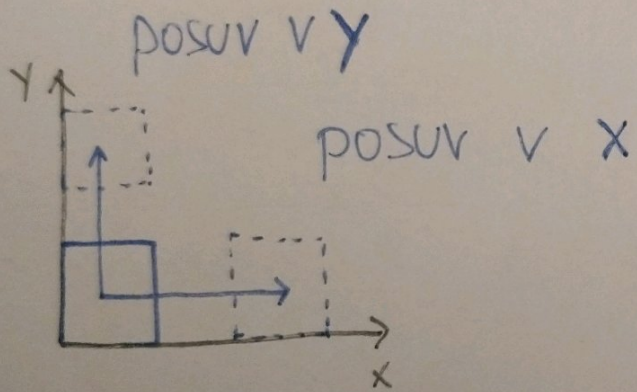 posuv v Y
Y
posuv v X
X